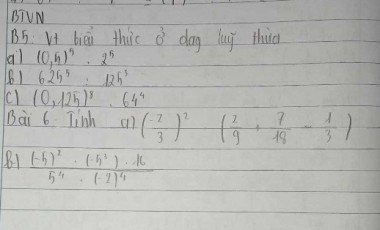 BTVN
B5. Vt biểu thức ở dạg luỹ thừa
a) (0,5)⁵ . 2⁵
b) 625⁵ : 125³
c) (0,125)⁸ . 64⁴
Bài 6 Tính a) (-2/3)² (2/9 + 7/18 - 1/3)
b) (-5)² . (-5²) . 16 / 5⁴ . (-2)⁴